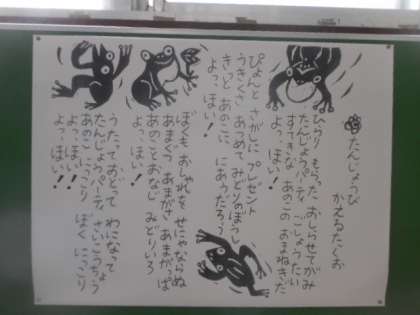 たんじょうび
かえるたくお
ひらり もらった おしらせてがみ
たんじょうパーティ ごしょうたい
すてきな あのこの おまねきだ
よっ、ほい!
ぴょんと さがしに プレゼント
うきくさ あつめて みどりのぼうし
きっと あのこに にあうだろう
よっ、ほい!
ぼくも おしゃれを せにゃならぬ
あまぐつ あまがさ あまがっぱ
あのことおなじ みどりいろ
よっ、ほい!
うたって おどって わになって
たんじょうパーティ さいこうちょう
あのこ にっこり ぼく にっこり
よっ、ほい!!